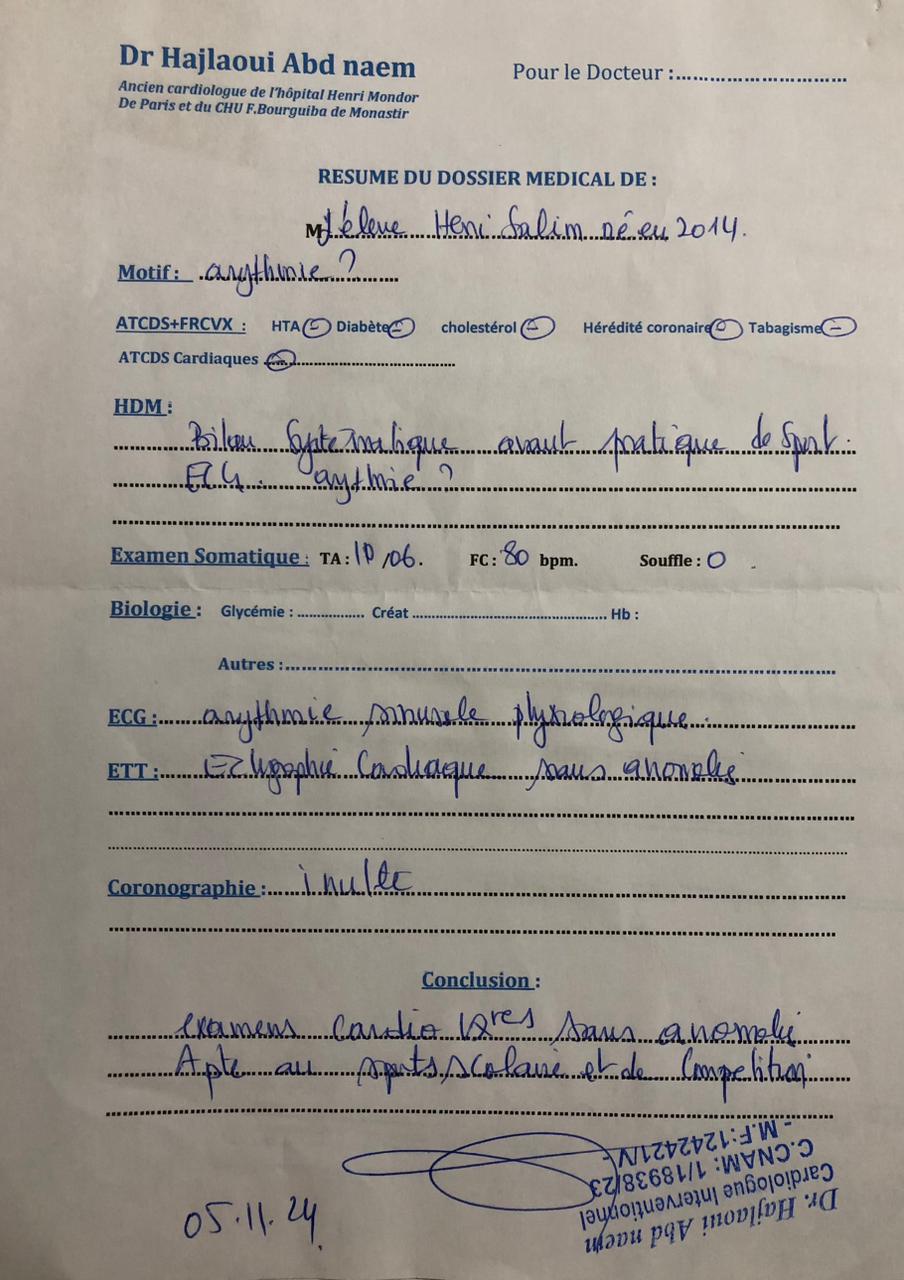 Dr Hajlaoui Abd naem
Pour le Docteur :..............................
Ancien cardiologue de l'hôpital Henri Mondor
De Paris et du CHU F.Bourguiba de Monastir
RESUME DU DOSSIER MEDICAL DE :
M l'éleve Heni Salim né en 2014.
Motif : arythmie ?
ATCDS+FRCVX : HTA (-) Diabète (-) cholestérol (-) Hérédité coronaire (-) Tabagisme (-)
ATCDS Cardiaques (-)
HDM :
Bilan Systematique avant pratique de Sport.
ECG. aythmie ?
Examen Somatique : TA : 10/06. FC : 80 bpm. Souffle : 0
Biologie : Glycémie : ................. Créat .................................................. Hb :
Autres :..............................................................
ECG : arythmie sinusale physiologique.
ETT : Echographie Cardiaque sans anomalie
Coronographie : inulte
Conclusion :
examens cardio Vxres sans anomalie
Apte au sports scolaire et de Competition
- M.F:1242421/V -
C.CNAM: 1/18938/23
Cardiologue Interventionnel
Dr. Hajlaoui Abd naem
05.11.24